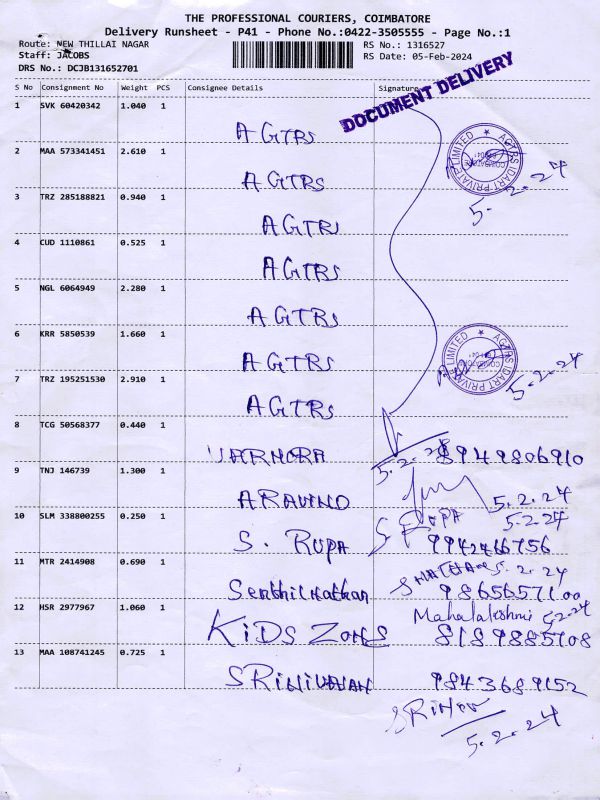 THE PROFESSIONAL COURIERS, COIMBATORE
Delivery Runsheet - P41 - Phone No.:0422-3505555 - Page No.:1
Route: NEW THILLAI NAGAR RS No.: 1316527
Staff: JACOBS RS Date: 05-Feb-2024
DRS No.: DCJB131652701
S No Consignment No Weight PCS Consignee Details Signature
DOCUMENT DELIVERY
1 SVK 60420342 1.040 1 AGTRS
AGTRS IDART PRIVATE LIMITED
5.2.24
2 MAA 573341451 2.610 1 AGTRS
3 TRZ 285188821 0.940 1 AGTRS
4 CUD 1110861 0.525 1 AGTRS
5 NGL 6064949 2.280 1 AGTRS
6 KRR 5850539 1.660 1 AGTRS
AGTRS IDART PRIVATE LIMITED
5.2.24
7 TRZ 195251530 2.910 1 AGTRS
8 TCG 50568377 0.440 1 8949806910
5.2.24
9 TNJ 146739 1.300 1 ARAVIND 5.2.24
10 SLM 338800255 0.250 1 S. RUPA S. Rupa 5.2.24
9942466756
11 MTR 2414908 0.690 1 Senthilnathan 5.2.24
9865657100
12 HSR 2977967 1.060 1 KIDS ZONS Mahalakshmi 5-2-24
8189885108
13 MAA 108741245 0.725 1 SRINIVASAN 9843689152
5.2.24